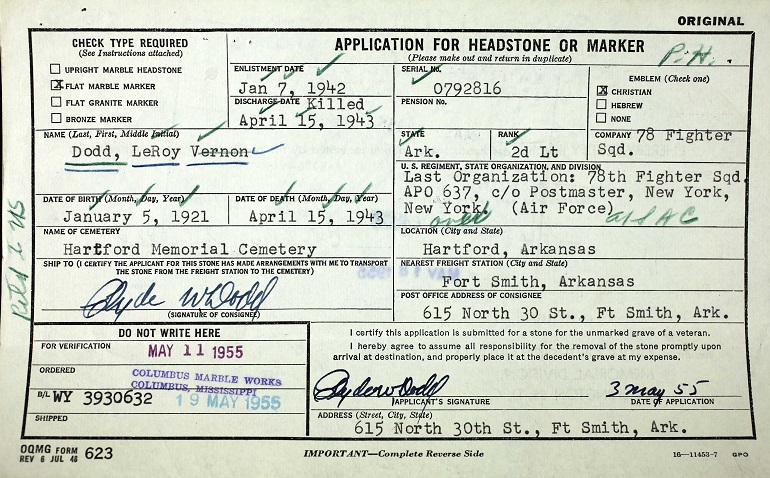 ORIGINAL
CHECK TYPE REQUIRED
(See Instructions attached)
UPRIGHT MARBLE HEADSTONE
X FLAT MARBLE MARKER
FLAT GRANITE MARKER
BRONZE MARKER
APPLICATION FOR HEADSTONE OR MARKER
(Please make out and return in duplicate)
P.H.
ENLISTMENT DATE
Jan 7, 1942
DISCHARGE DATE Killed
April 15, 1943
SERIAL No.
0792816
PENSION No.
EMBLEM (Check one)
X CHRISTIAN
HEBREW
NONE
NAME (Last, First, Middle Initial)
Dodd, LeRoy Vernon
STATE
Ark.
RANK
2d Lt
COMPANY 78 Fighter
Sqd.
U. S. REGIMENT, STATE ORGANIZATION, AND DIVISION
Last Organization: 78th Fighter Sqd.
APO 637, c/o Postmaster, New York,
New York. (Air Force)
over
DATE OF BIRTH (Month, Day, Year)
January 5, 1921
DATE OF DEATH (Month, Day, Year)
April 15, 1943
NAME OF CEMETERY
Hartford Memorial Cemetery
LOCATION (City and State)
Hartford, Arkansas
SHIP TO (I CERTIFY THE APPLICANT FOR THIS STONE HAS MADE ARRANGEMENTS WITH ME TO TRANSPORT
THE STONE FROM THE FREIGHT STATION TO THE CEMETERY)
Clyde W Dodd
(SIGNATURE OF CONSIGNEE)
NEAREST FREIGHT STATION (City and State)
Fort Smith, Arkansas
POST OFFICE ADDRESS OF CONSIGNEE
615 North 30 St., Ft Smith, Ark.
DO NOT WRITE HERE
FOR VERIFICATION
MAY 11 1955
ORDERED
COLUMBUS MARBLE WORKS
COLUMBUS, MISSISSIPPI
B/L WY 3930632
19 MAY 1955
SHIPPED
I certify this application is submitted for a stone for the unmarked grave of a veteran.
I hereby agree to assume all responsibility for the removal of the stone promptly upon
arrival at destination, and properly place it at the decedent's grave at my expense.
Clyde W Dodd
APPLICANT'S SIGNATURE
3 May 55
DATE OF APPLICATION
ADDRESS (Street, City, State)
615 North 30th St., Ft Smith, Ark.
OQMG FORM
REV 6 JUL 48 623
IMPORTANT—Complete Reverse Side
16—11453-7 GPO